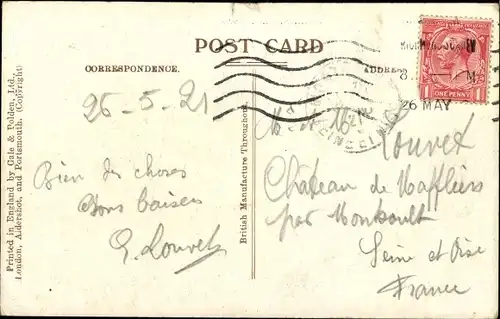 POST CARD
CORRESPONDENCE.
ADDRESS
26 MAY
ONE PENNY
26-5-21
Bien des choses
Bons baisers
G. Louvet
Louvet
Château de Maffliers
par Montsoult
Seine et Oise
France
British Manufacture Throughout.
Printed in England by Gale & Polden, Ltd.,
London, Aldershot, and Portsmouth. (Copyright)